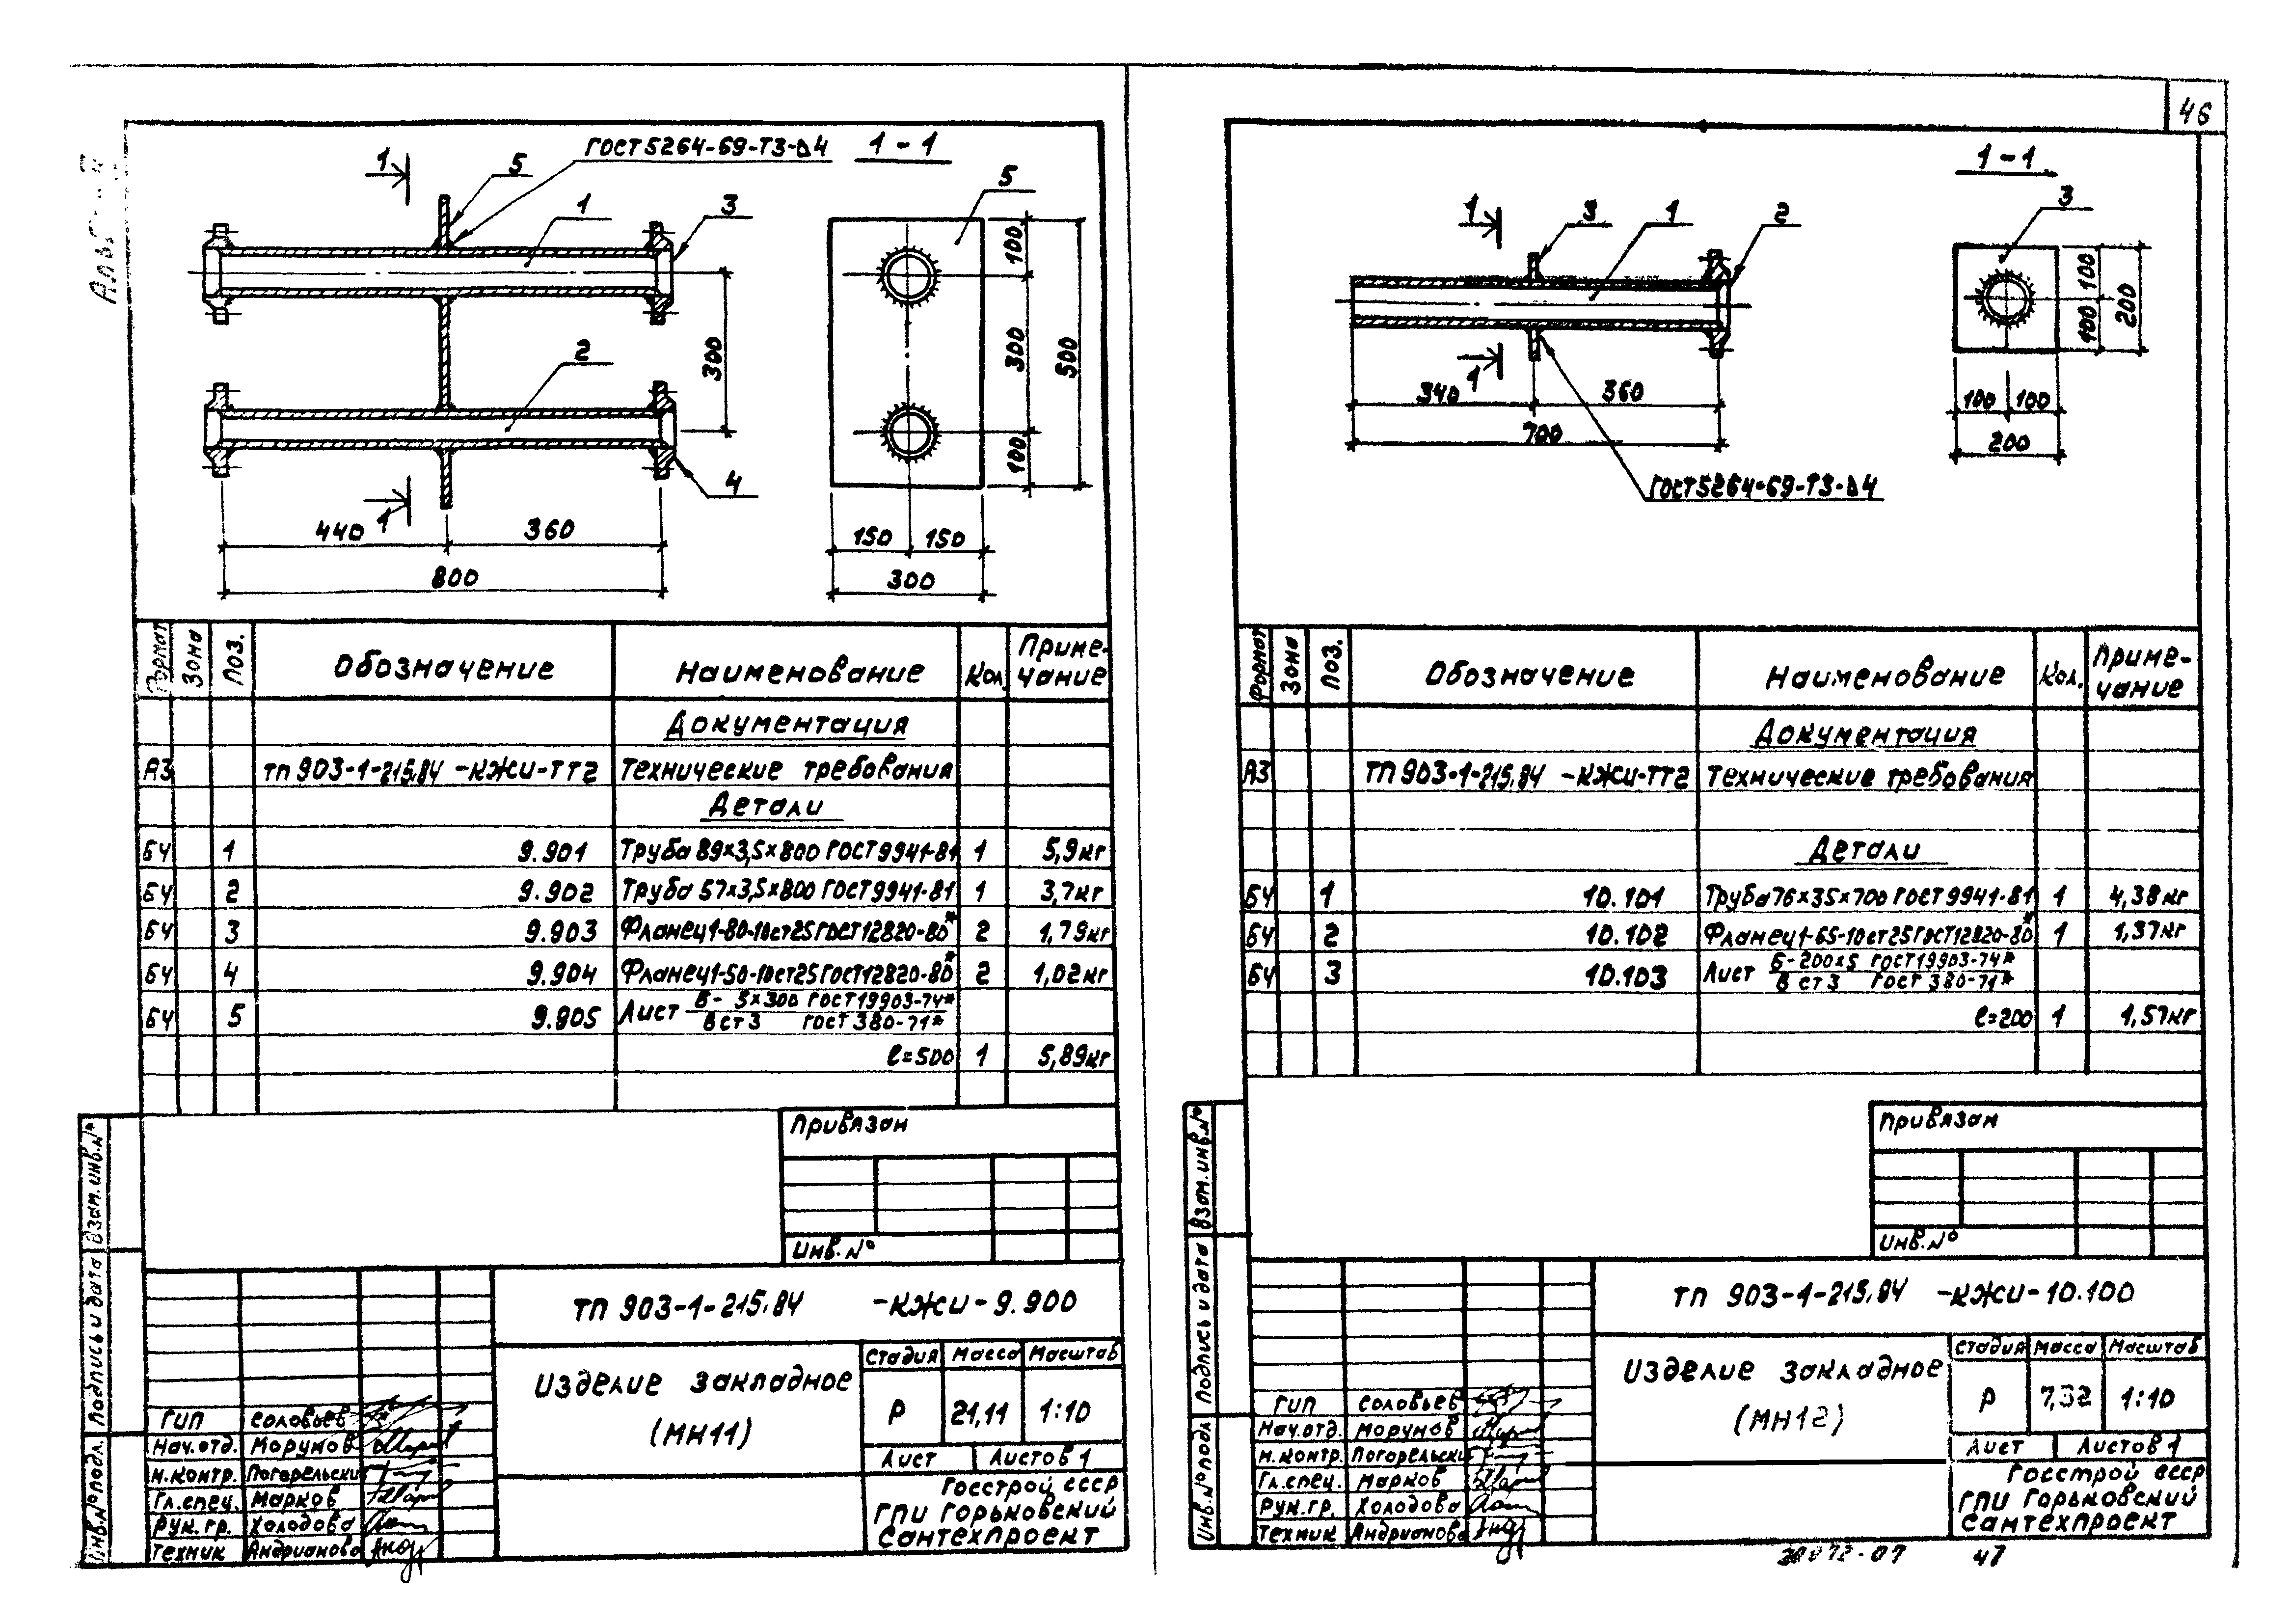 46
ГОСТ5264-69-Т3-Δ4
1-1
1
5
1
3
5
2
4
1
300
440
360
800
100
300
100
500
150
150
300
Формат
Зона
Поз.
Обозначение
Наименование
Кол.
Приме-
чание
Документация
А3 ТП903-1-215.84 -КЖИ-ТТ2 Технические требования
Детали
БЧ 1 9.901 Труба 89×3,5×800 ГОСТ9941-81 1 5,9кг
БЧ 2 9.902 Труба 57×3,5×800 ГОСТ9941-81 1 3,7кг
БЧ 3 9.903 Фланец1-80-10ст25ГОСТ12820-80* 2 1,79кг
БЧ 4 9.904 Фланец1-50-10ст25ГОСТ12820-80* 2 1,02кг
БЧ 5 9.905 Лист Б- 5×300 ГОСТ19903-74*
ВСт3 ГОСТ 380-71*
ℓ=500 1 5,89кг
Привязан
Инв.№
Взам.инв.№
Подпись и дата
Инв.№подл.
ТП 903-1-215.84 -КЖИ-9.900
Изделие закладное
(МН11)
Стадия Масса Масштаб
Р 21,11 1:10
Лист Листов 1
Госстрой СССР
ГПИ Горьковский
Сантехпроект
ГИП Соловьев
Нач.отд. Морунов
Н.контр. Погорельски
Гл.спец. Марков
Рук.гр. Холодова
Техник Андрианова
1-1
1
3
1
2
3
1
340
360
700
ГОСТ5264-69-Т3-Δ4
100
100
200
100
100
200
Формат
Зона
Поз.
Обозначение
Наименование
Кол.
Приме-
чание
Документация
А3 ТП903-1-215.84 -КЖИ-ТТ2 Технические требования
Детали
БЧ 1 10.101 Труба76×35×700 ГОСТ9941-81 1 4,38кг
БЧ 2 10.102 Фланец1-65-10ст25ГОСТ12820-80* 1 1,37кг
БЧ 3 10.103 Лист Б-200×5 ГОСТ19903-74*
ВСт3 ГОСТ 380-71*
ℓ=200 1 1,57кг
Привязан
Инв.№
Взам.инв.№
Подпись и дата
Инв.№подл
ТП 903-1-215.84 -КЖИ-10.100
Изделие закладное
(МН12)
Стадия Масса Масштаб
Р 7,32 1:10
Лист Листов 1
Госстрой СССР
ГПИ Горьковский
Сантехпроект
ГИП Соловьев
Нач.отд. Морунов
Н.контр. Погорельски
Гл.спец. Марков
Рук.гр. Холодова
Техник Андрианова
47